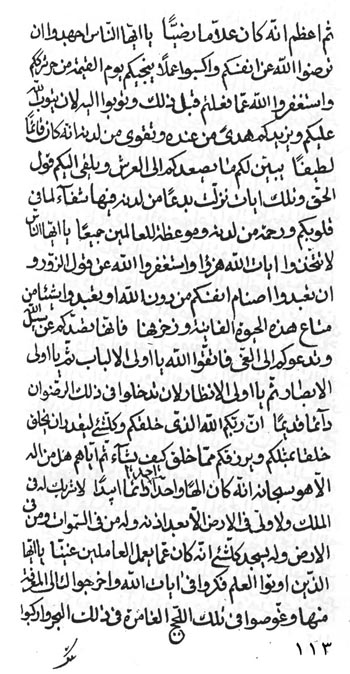 ثم اعظم انه كان علاما رضيا يا ايها الناس اجهدوا ان
ترضوا الله عن انفسكم واكسبوا عملا ينجيكم يوم القيمة من حر
واستغفروا الله عما فعلتم قبل ذلك وتوبوا اليه لان يتوب الله
عليكم ويزيدكم هدى من عنده وتقوى من لدنه انه كان قائما
لطيفا يبين لكم ما يصعدكم الى العرش ويلقى اليكم قول
الحق وتلك ايات نزلت بدعا من لدنه فيها شفاء لما فى
قلوبكم ورحمة من لدنه وموعظة للعالمين جميعا يا ايها الناس
لا تتخذوا ايات الله هزوا واستغفروا الله عن قول الزور و
ان تعبدوا اصنام انفسكم من دون الله او تعبدوا شيئا من
متاع هذه الحيوة الفانية وزخرفها فانها تصدكم عن سبيل الله
وتدعوكم الى الغى فاتقوا الله يا اولى الالباب ثم يا اولى
الابصار ثم يا اولى الانظار لان تدخلوا فى ذلك الرضوان
دائما قديما ان ربكم الله الذى خلقكم وكلشئ ليقدر ان يخلق
خلقا بمثلكم ويرزقكم مما خلق كيف يشاء ثم اياهم هل من اله
الا هو سبحانه انه كان الها واحدا دائما ابدا لا شريك له فى
الملك ولا ولى فى الارض الا بعد اذنه وله من فى السموات ومن فى
الارض وله يسجد كلشئ انه كان عما يعمل العاملين غنيا يا ايها
الذين اوتوا العلم فكروا فى ايات الله واخرجوا
منها وغوصوا فى تلك اللجج الغامرة فى ذلك البحر واركبوا
١١٣